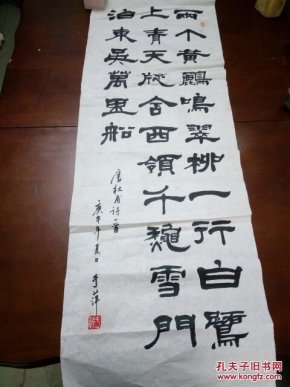 兩个黄鸝鳴翠柳一行白鷺
上青天牕含西領千龝雪門
泊東吳萬里船
唐杜甫詩一首
庚午年夏日
孔夫子旧书网